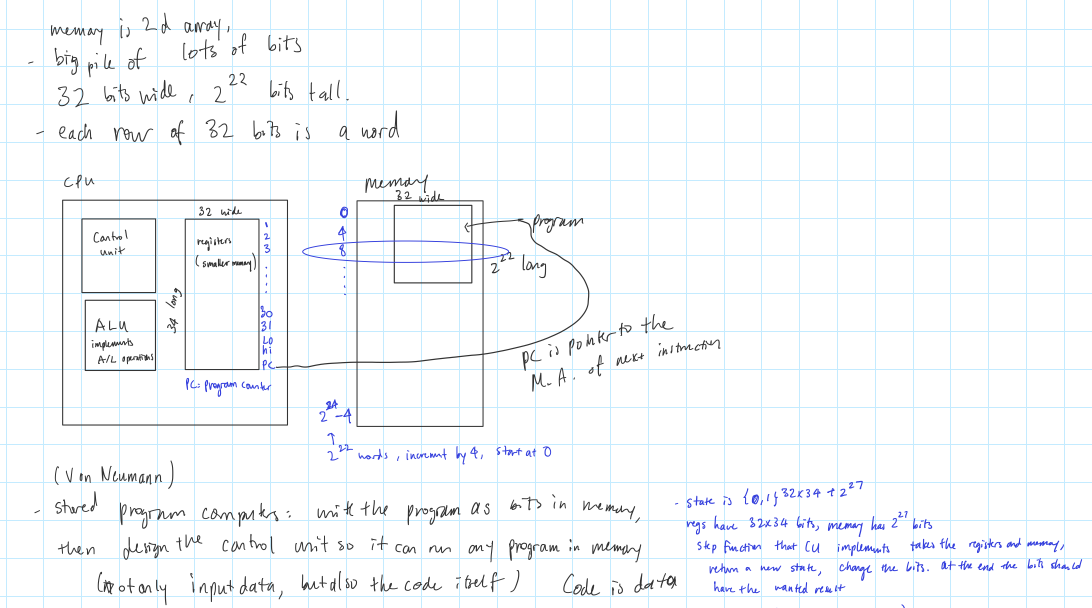 memory is 2d array,
- big pile of lots of bits
32 bits wide, 2^22 bits tall.
- each row of 32 bits is a word
CPU
Control unit
ALU
implements
A/L operations
32 wide
registers
(smaller memory)
34 long
1
2
3
30
31
Lo
hi
PC
PC: program counter
memory
32 wide
0
4
8
2^24-4
↑
2^22 words, increment by 4, start at 0
program
2^22 long
PC is pointer to the
M.A. of next instruction
(Von Neumann)
- stored program computers: write the program as bits in memory,
then design the control unit so it can run any program in memory
(not only input data, but also the code itself) Code is data
- state is {0,1}^32x34 + 2^27
regs have 32x34 bits, memory has 2^27 bits
step function that CU implements takes the registers and memory,
return a new state, change the bits. at the end the bits should
have the wanted result